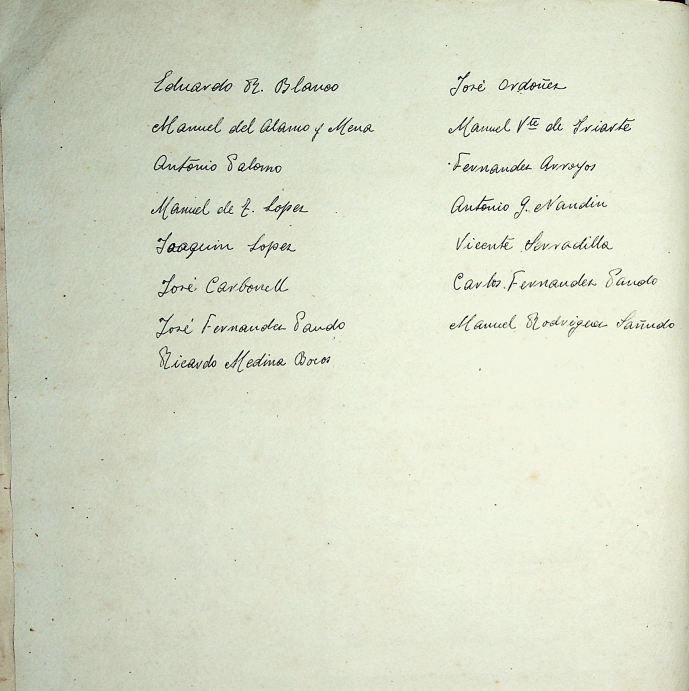 Eduardo R. Blanco
Manuel del Alamo y Mena
Antonio Palomo
Manuel de Z. Lopez
Joaquin Lopez
José Carbonell
José Fernandez Pando
Ricardo Medina Bocos
José Ordoñez
Manuel Vte de Iriarte
Fernandez Arroyos
Antonio G. Nandin
Vicente Serradilla
Carlos Fernandez Pando
Manuel Rodriguez Sañudo